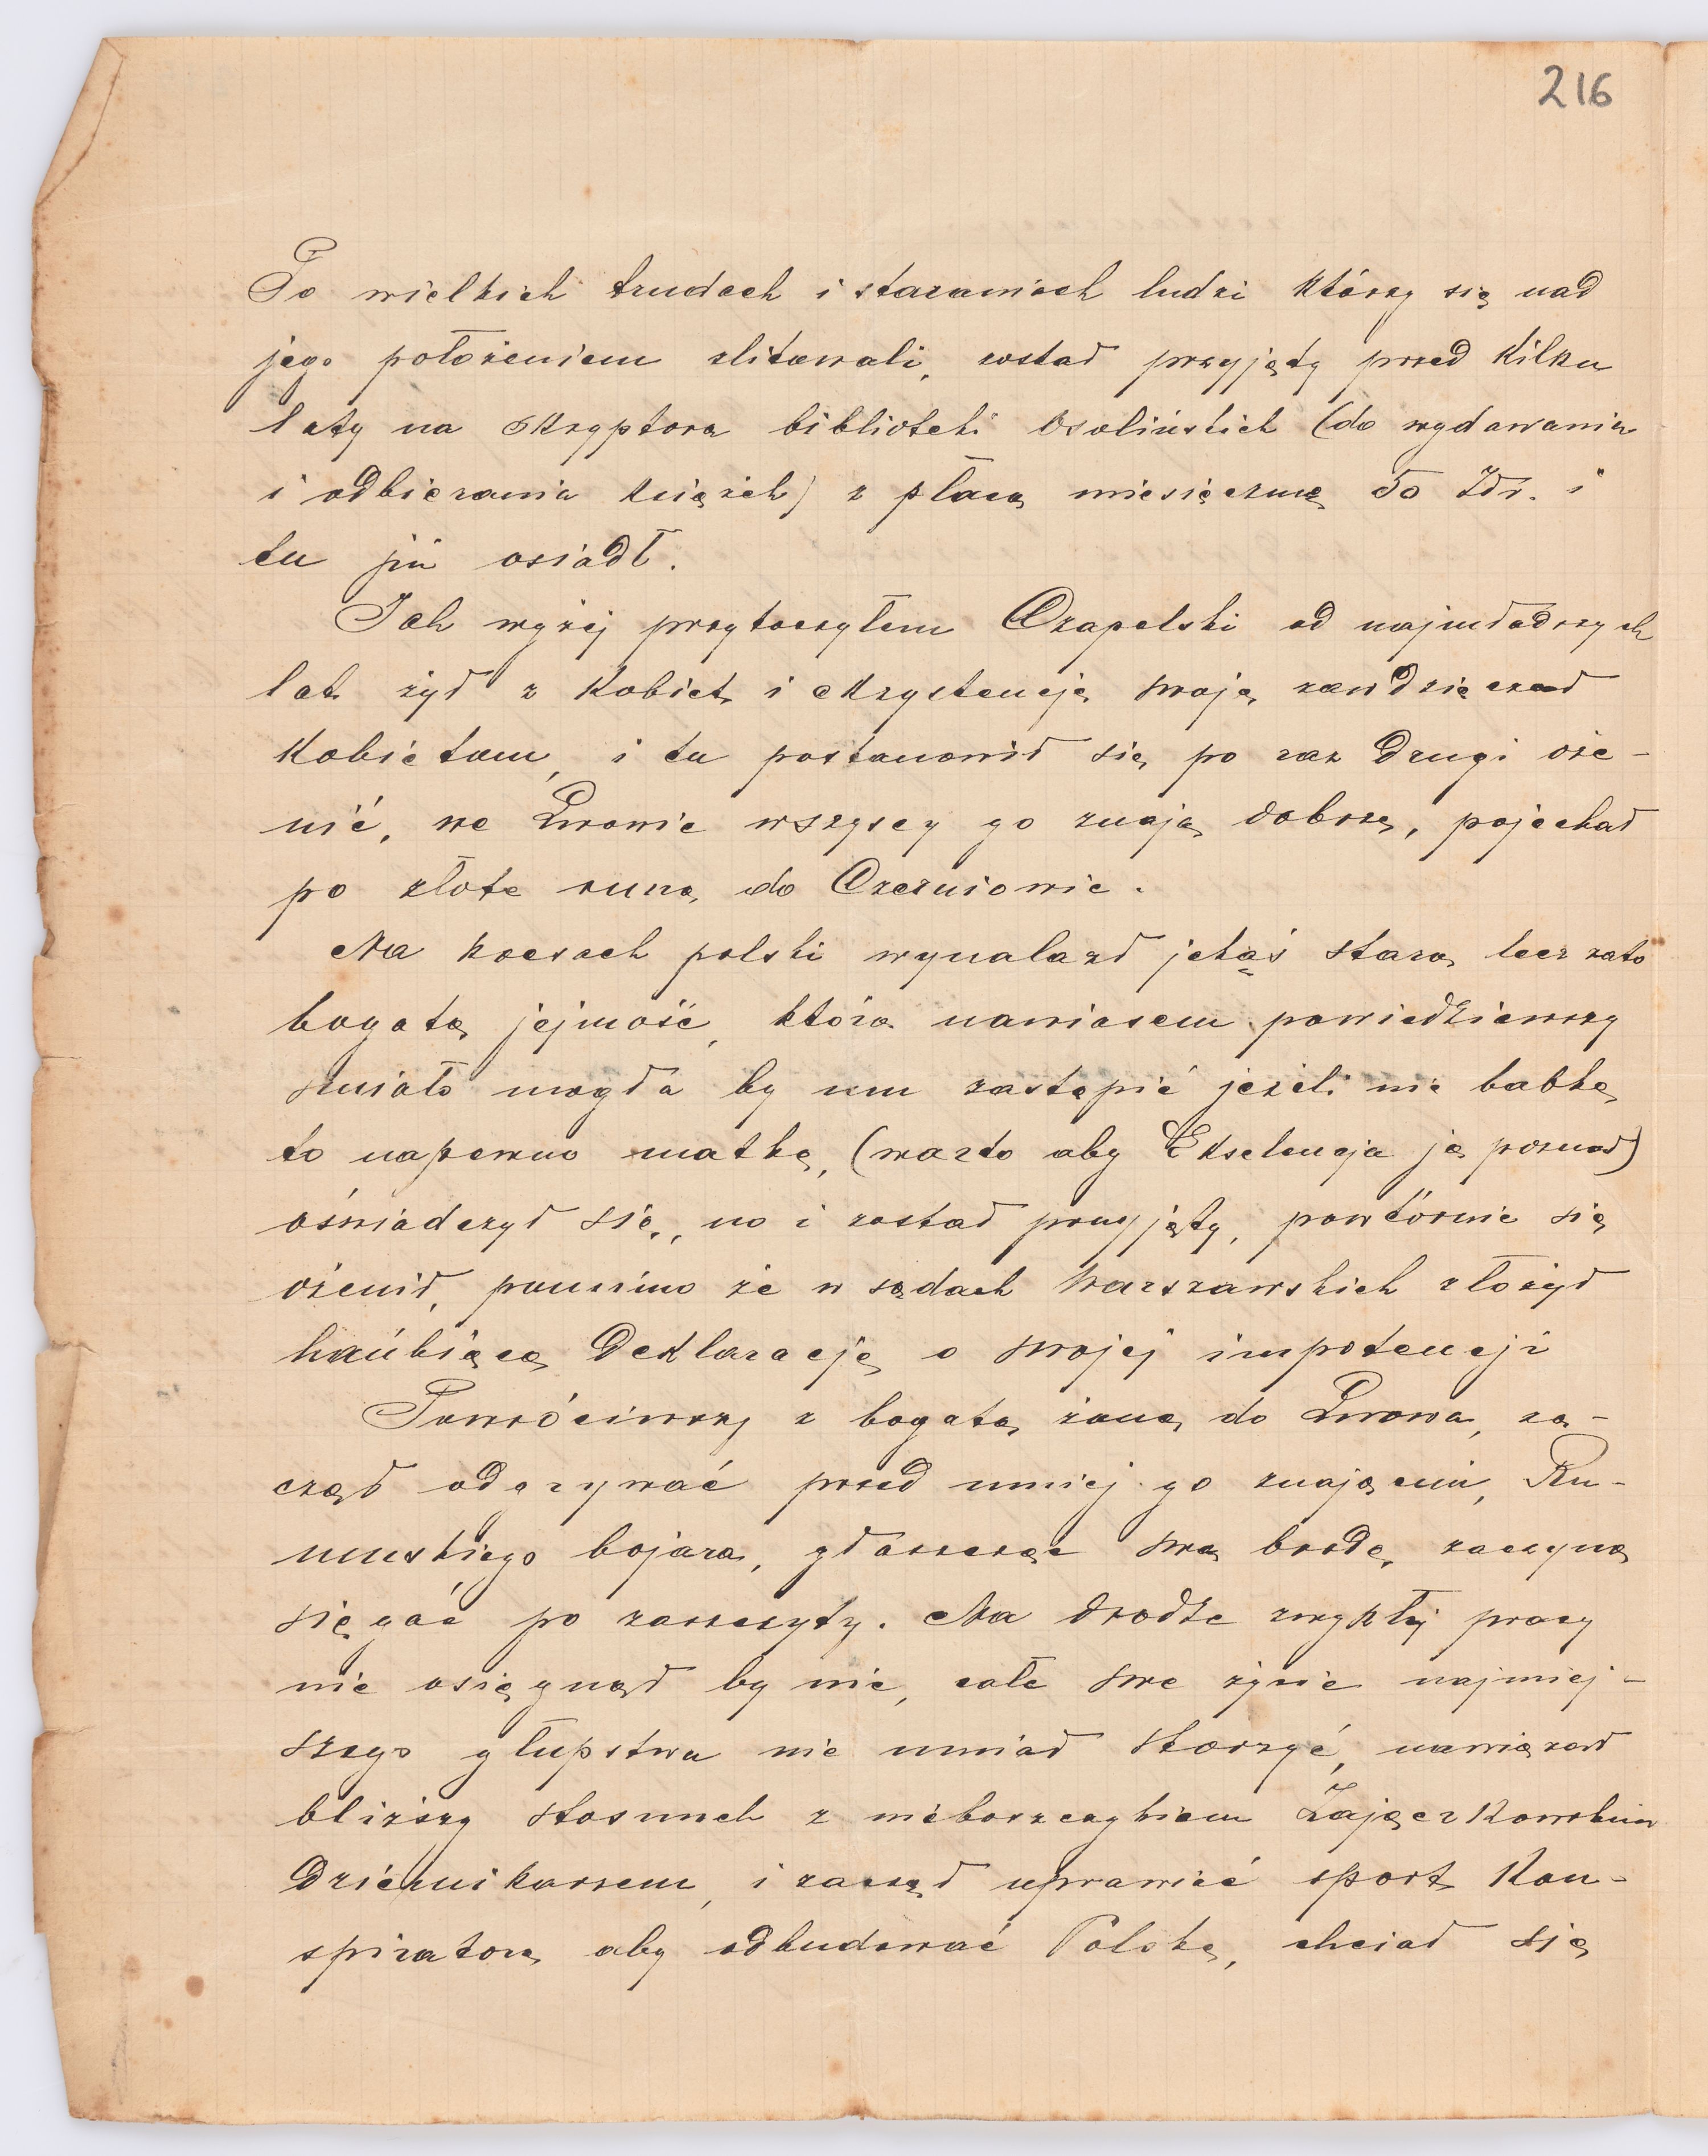 216
Po wielkich trudach i staraniach ludzi którzy się nad
jego położeniem zlitowali, został przyjęty przed kilku
laty na skryptora biblioteki Osolińskich (do wydawania
i odbierania książek) z płacą miesięczną 50 Złr. i
tu już osiadł.
Jak wyżej przytoczyłem Czapelski od najmłodszych
lat żył z kobiet i ekzystencję swoją zawdzięczał
kobietom, i tu postanowił się po raz drugi oże-
nić, we Lwowie wszyscy go znają dobrze, pojechał
po złote runo, do Czerniowic.
Na kresach polski wynalazł jakąś starą lecz zato
bogatą jejmość, która nawiasem powiedziawszy
śmiało mogła by mu zastąpić jeżeli nie babkę
to napewno matkę, (warto aby Ekselencja ją poznał)
oświadczył się, no i został przyjęty, powtórnie się
ożenił, pomimo że w sądach warszawskich złożył
hańbiącą deklarację o swojej impotencji
Powróciwszy z bogatą żoną do Lwowa, za-
czął odgrywać przed mniej go znającemi, Ru-
muskiego bojara, głaszcząc swą brodę, zaczyna
sięgać po zaszczyty. Na drodze zwykłej pracy
nie osięgnął by nic, całe swe życie najmiej-
szego głupstwa nie umiał stworzyć, nawiązał
bliższy stosunek z nieboszczykiem Zajączkowskim
dziennikarzem, i zaczął uprawiać sport kon-
spiratora, aby odbudować Polskę, chciał się